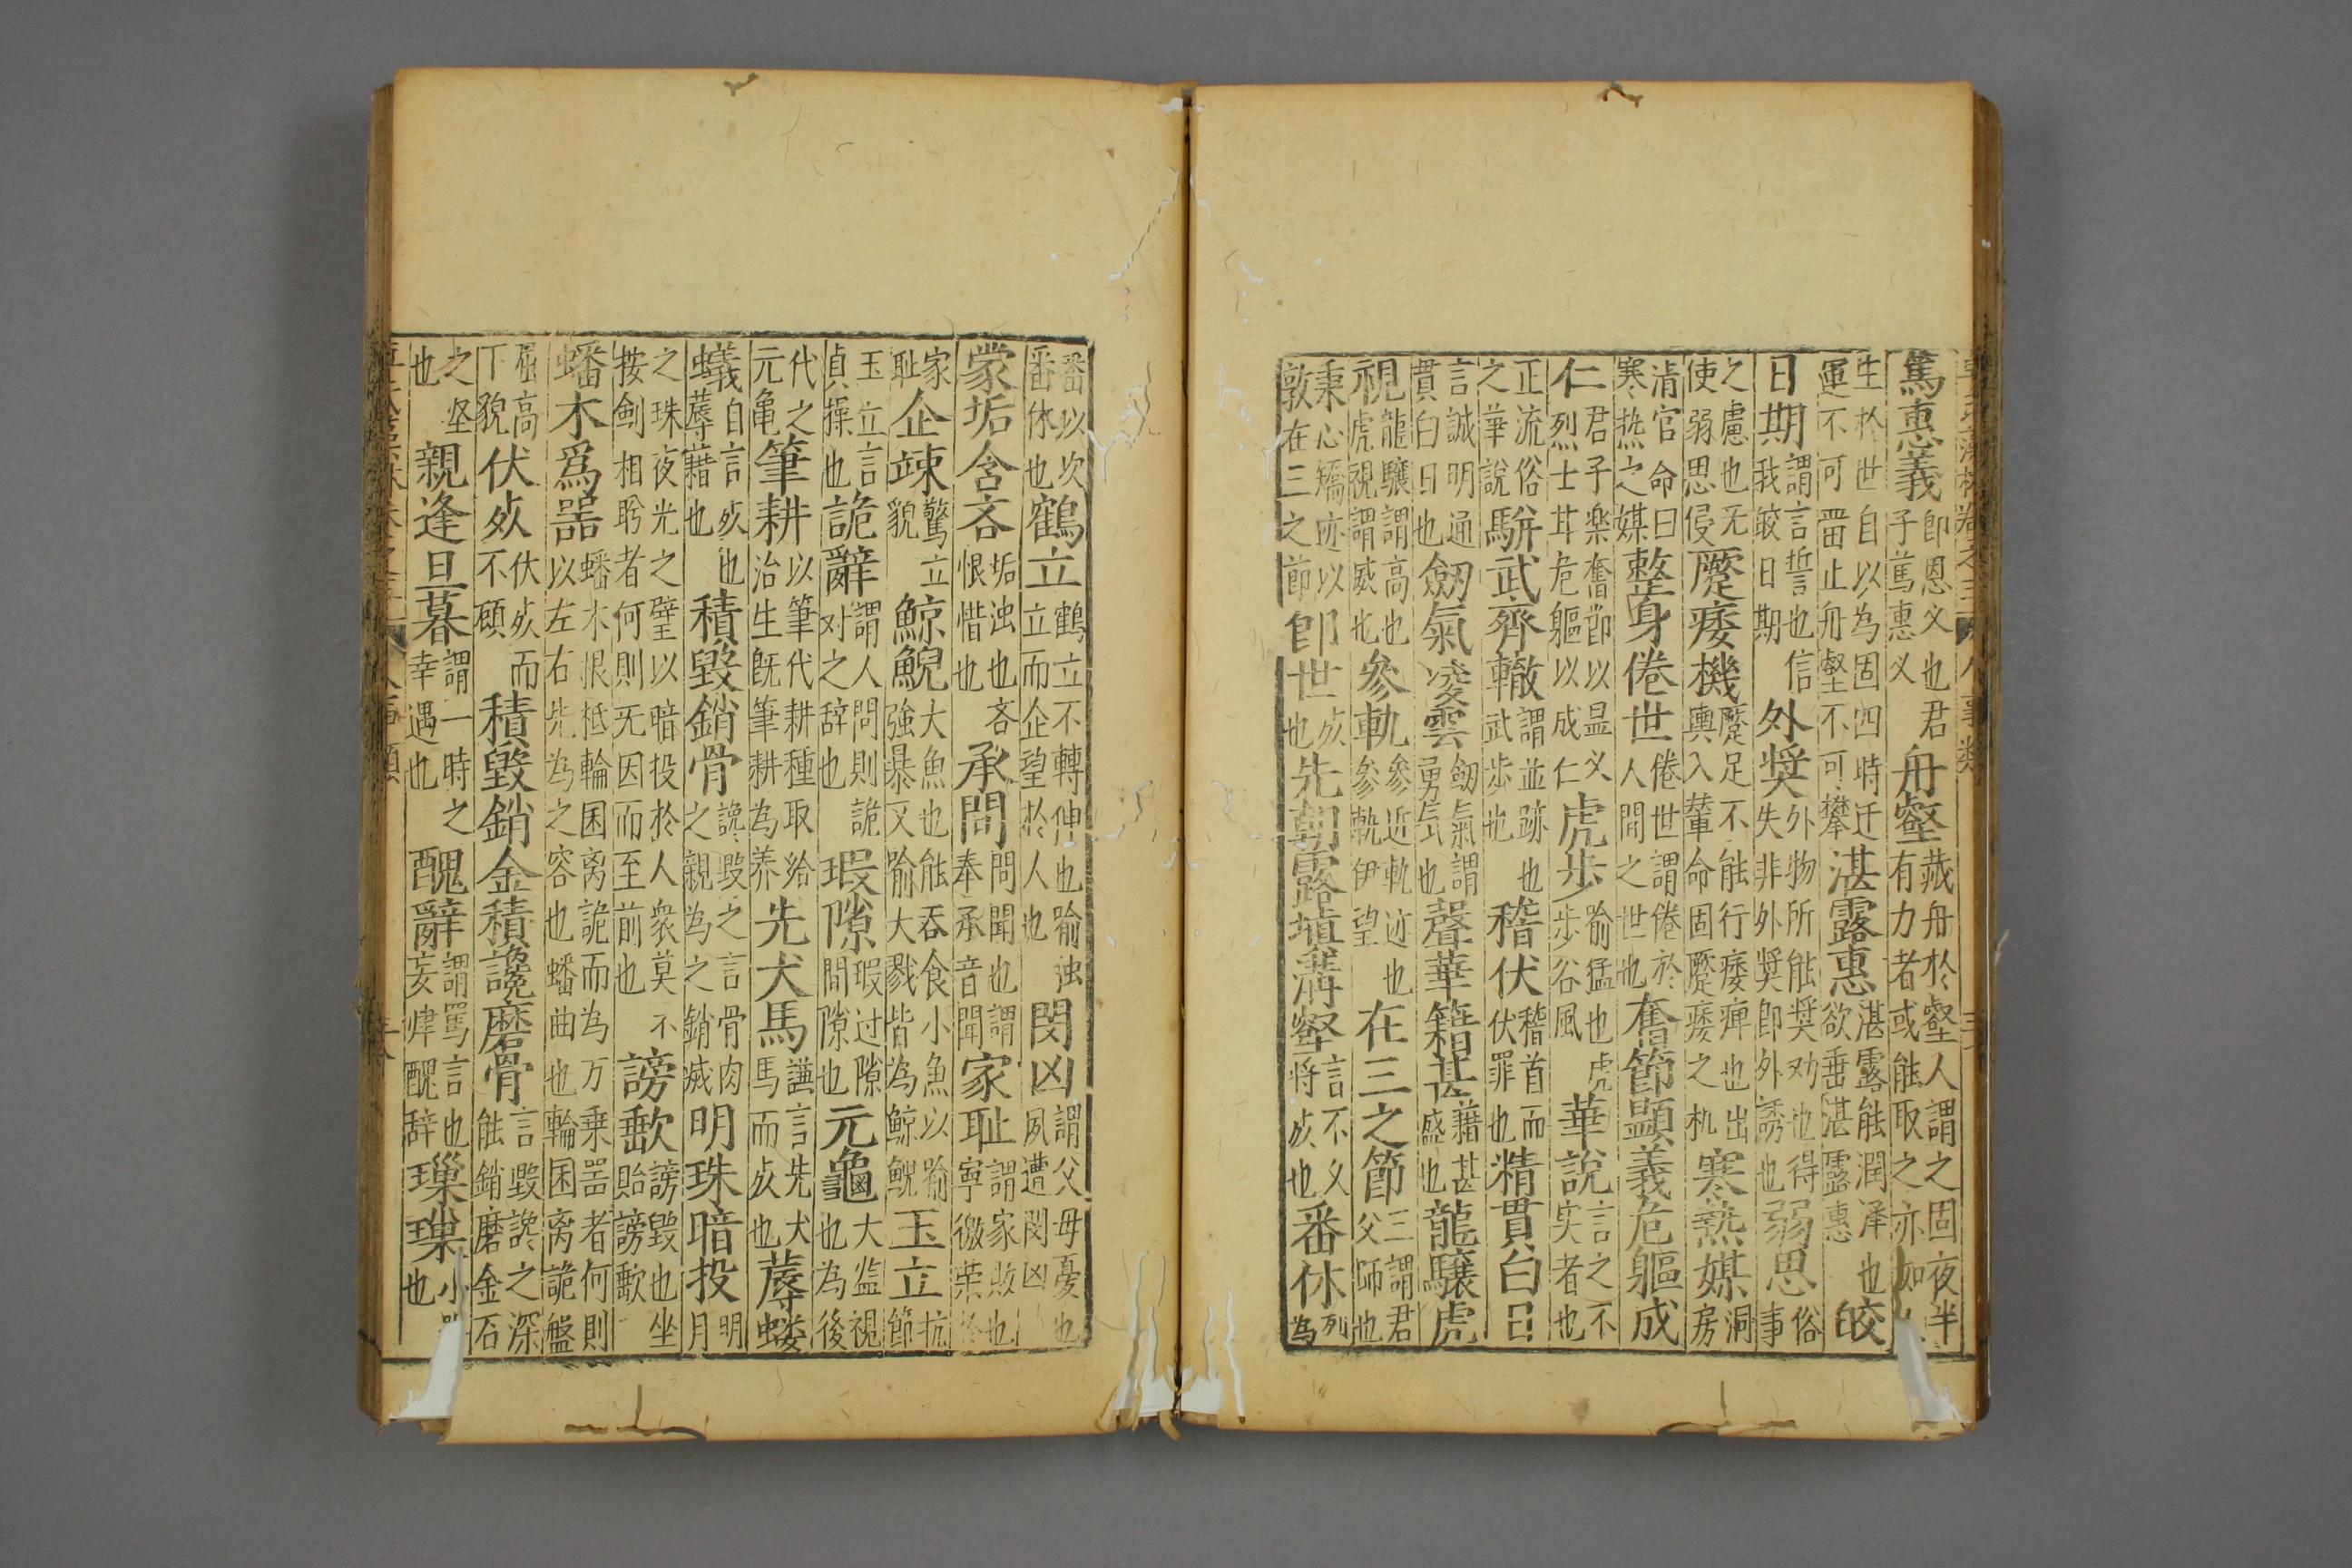 篤惠義即恩义也君子篤惠义舟壑藏舟於壑人謂之固夜半有力者或能取之亦如
生於世自以為固四時迁運不可畱止舟壑不可攀湛露惠湛露能潤澤也欲垂湛露惠皎
日期謂言誓也信我皎日期外奨外物所能奨劝也得失非外奨即外誘也弱思俗事
之慮也无使弱思侵蹷痿機蹷足不能行痿痺也出輿入輦命固蹷痿之机寒熱媒洞房
清官命曰寒热之媒整身倦世倦世謂倦於人間之世也奮節顯義危軀成
仁君子楽奮節以显义烈士甘危軀以成仁虎步喻猛也虎步谷風華說言之不实者也
正流俗之華說駢武齊轍謂並跡也武步也稽伏稽首而伏罪也精貫白日
言誠明通貫白日也劒氣凌雲劒氣謂勇气也聲華籍甚藉甚盛也龍驤虎
視龍驤謂高也虎視謂威也參軌參近軌迹也參軌伊望在三之節三謂君父師也
秉心矯迹以敦在三之節即世歿也先朝露填溝壑言不义将歿也番休列為
番以次番休也鶴立鶴立不轉伸也喻浊立而企望於人也閔凶謂父母憂也夙遭閔凶
蒙垢含吝垢浊也吝恨惜也承問問聞也謂奉承音聞家耻謂家敗也寧徼
家耻企竦驚立貌鯨鯢大魚也能吞食小魚以喻強暴又喻大戮皆為鯨鯢玉立抗節
玉立言貞操也詭辭謂人問則詭对之辞也瑕隙瑕过隙間隙也元龜大监視也為後
代之元亀筆耕以筆代耕種取給治生既筆耕為养先犬馬謙言先犬馬而歿也蓐螻
蟻自言歿也蓐藉也積毀銷骨讒毀之言骨肉之親為之銷滅明珠暗投明月
之珠夜光之璧以暗投於人衆莫不按劍相眄者何則无因而至前也謗歜謗毀也坐貽謗歜
蟠木爲噐蟠木根柢輪囷离詭而為万乗噐者何則以左右先為之容也蟠曲也輪囷离詭盤
屈高下貌伏歿伏歿而不顧積毀銷金積讒磨骨言毀讒之深能銷磨金石
之坚也親逢旦暮謂一時之幸遇也醜辭謂罵言也妄肆醜辞璅璅小也